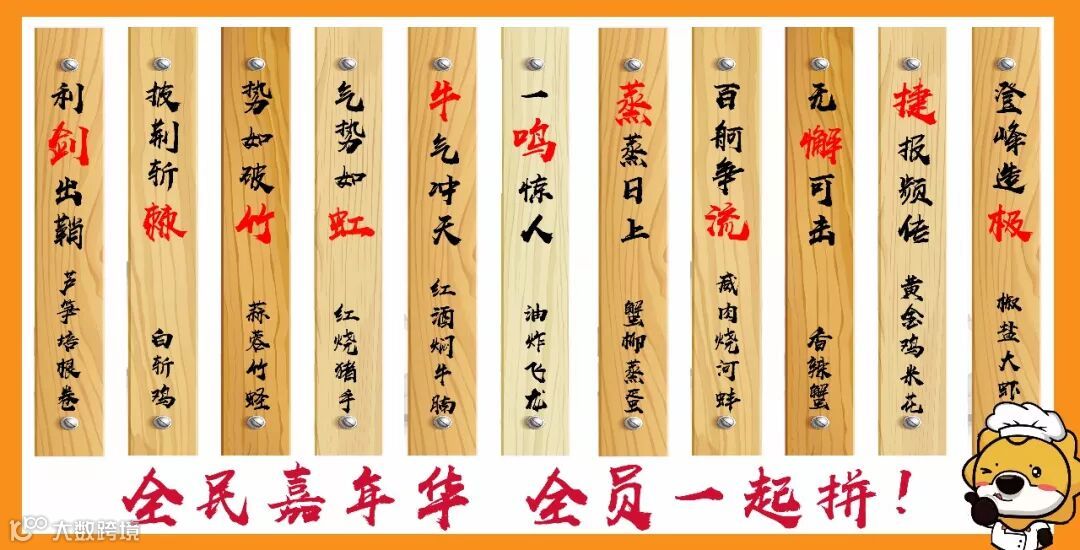 利剑出鞘 芦笋培根卷
披荆斩棘 白斩鸡
势如破竹 蒜蓉竹蛏
气势如虹 红烧猪手
牛气冲天 红酒焖牛腩
一鸣惊人 油炸飞龙
蒸蒸日上 蟹柳蒸蛋
百舸争流 咸肉烧河蚌
无懈可击 香辣蟹
捷报频传 黄金鸡米花
登峰造极 椒盐大虾
全民嘉年华 全员一起拼!
大数跨境